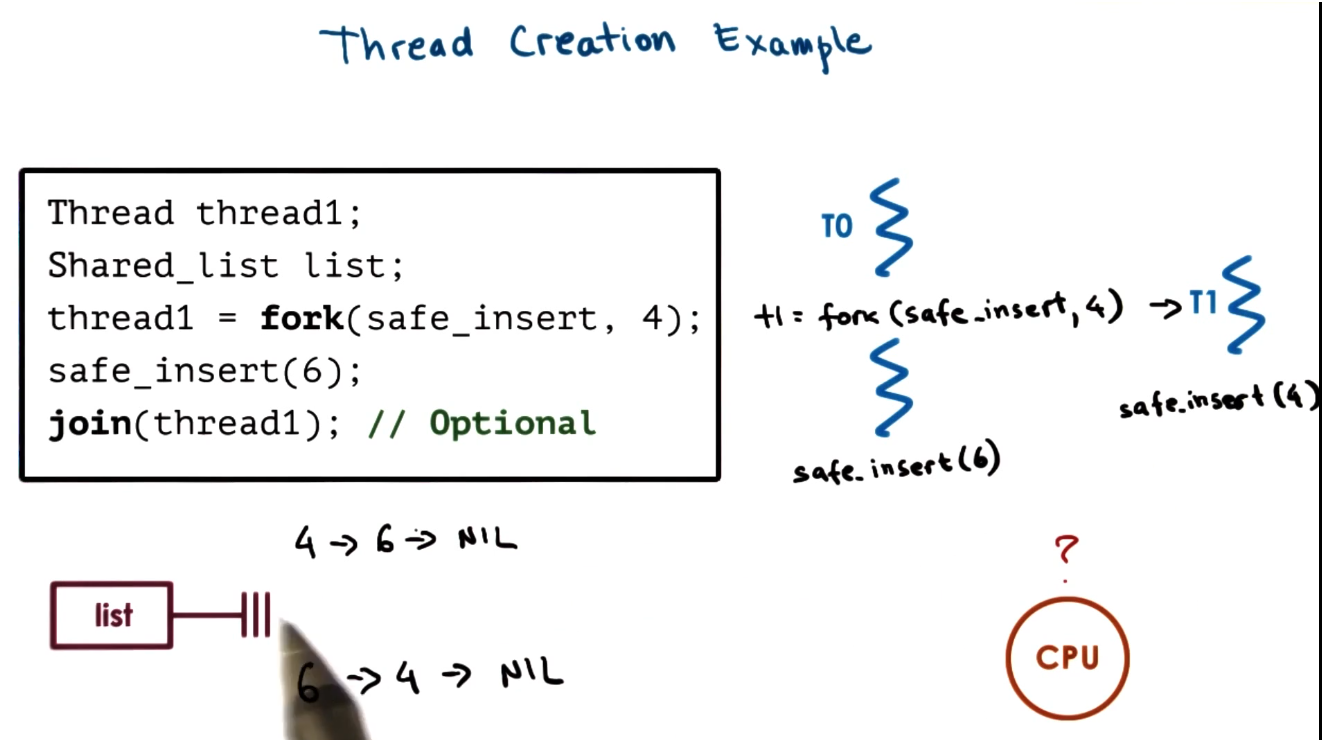 Thread Creation Example
Thread thread1;
Shared_list list;
thread1 = fork(safe_insert, 4);
safe_insert(6);
join(thread1); // Optional
T0
t1 = fork (safe_insert, 4) → T1
safe_insert (4)
safe_insert (6)
4 → 6 → NIL
list
6 → 4 → NIL
?
CPU